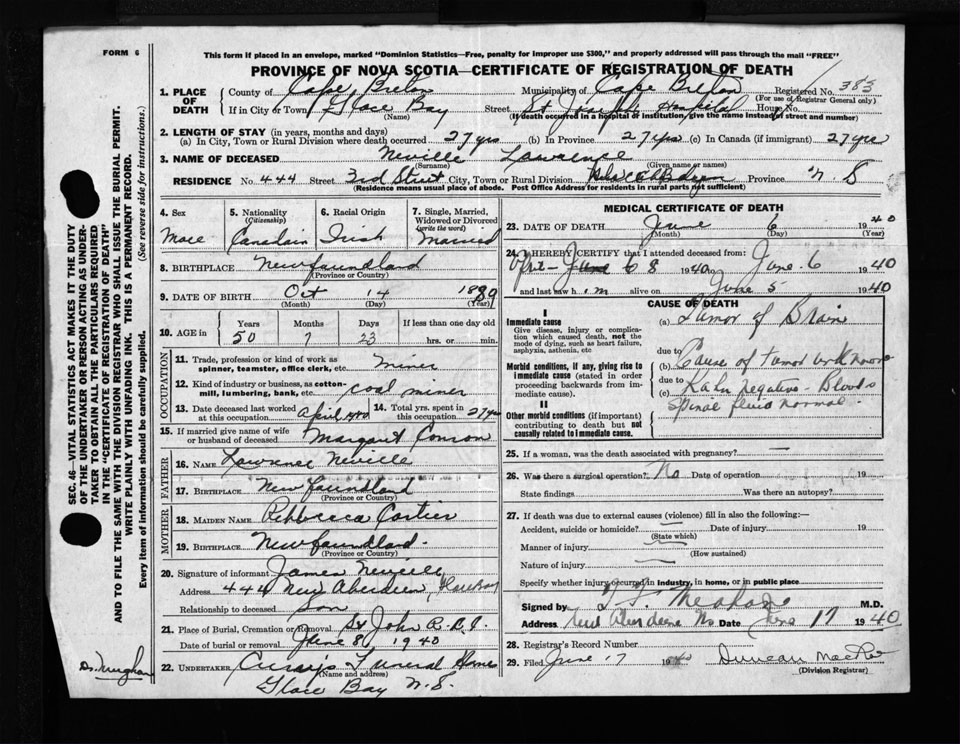 FORM 6
This form if placed in an envelope, marked "Dominion Statistics—Free, penalty for improper use $300," and properly addressed will pass through the mail "FREE"
PROVINCE OF NOVA SCOTIA—CERTIFICATE OF REGISTRATION OF DEATH
1. PLACE OF DEATH
County of Cape Breton Municipality of Cape Breton Registered No. 383
(For use of Registrar General only)
If in City or Town Glace Bay Street St Joseph Hospital House No.
(Name) (If death occurred in a hospital or institution, give the name instead of street and number)
2. LENGTH OF STAY (in years, months and days)
(a) In City, Town or Rural Division where death occurred 27 yrs (b) in Province 27 yrs (c) In Canada (if immigrant) 27 yrs
3. NAME OF DECEASED Neville Lawrence
(Surname) (Given name or names)
RESIDENCE No. 444 Street 3rd Street City, Town or Rural Division Province N. S
(Residence means usual place of abode. Post Office Address for residents in rural parts not sufficient)
4. Sex
Male
5. Nationality
(Citizenship)
Canadain
6. Racial Origin
Irish
7. Single, Married, Widowed or Divorced
(write the word)
Married
8. BIRTHPLACE Newfoundland
(Province or Country)
9. DATE OF BIRTH Oct 14 1889
(Month) (Day) (Year)
10. AGE in
Years Months Days If less than one day
50 7 23 hrs. or min.
OCCUPATION
11. Trade, profession or kind of work as
spinner, teamster, office clerk, etc. miner
12. Kind of industry or business, as cotton-
mill, lumbering, bank, etc. coal miner
13. Date deceased last worked at this occupation April
14. Total yrs. spent in this occupation 27 yrs
15. If married give name of wife
or husband of deceased Margaret
FATHER
16. NAME Lawrence Neville
17. BIRTHPLACE Newfoundland
(Province or Country)
MOTHER
18. MAIDEN NAME Rebbecca Cartier
19. BIRTHPLACE Newfoundland.
(Province or Country)
20. Signature of informant James Neville
Address 444 New Aberdeen, Glace Bay
Relationship to deceased Son
21. Place of Burial, Cremation or Removal St John
Date of burial or removal June 8, 1940
22. UNDERTAKER Curry's Funeral Homes
(Name and address)
Glace Bay N. S.
MEDICAL CERTIFICATE OF DEATH
23. DATE OF DEATH June 6 1940
(Month) (Day) (Year)
24. I HEREBY CERTIFY that I attended deceased from:
8 1940 to June 6 1940
and last saw him alive on June 5 1940
CAUSE OF DEATH
I
Immediate cause
Give disease, injury or complication which caused death, not the mode of dying, such as heart failure, asphyxia, asthenia, etc
(a) Tumor of Brain
Morbid conditions, if any, giving rise to immediate cause (stated in order proceeding backwards from immediate cause).
due to
(b) Cause of tumor unknown
due to
(c) Kahn negative - Bloods
Spinal fluid normal.
II
Other morbid conditions (if important) contributing to death but not causally related to immediate cause.
25. If a woman, was the death associated with pregnancy? —
26. Was there a surgical operation? No Date of operation 19
State findings Was there an autopsy?
27. If death was due to external causes (violence) fill in also the following:—
Accident, suicide or homicide? Date of injury 19
(State which)
Manner of injury
(How sustained)
Nature of injury
Specify whether injury occurred in industry, in home, or in public place
Signed by M.D.
Address New Aberdeen Date June 17 1940
28. Registrar's Record Number
29. Filed June 17 1940 Duncan
(Division Registrar)
SEC. 46—VITAL STATISTICS ACT MAKES IT THE DUTY
OF THE UNDERTAKER OR PERSON ACTING AS UNDER-
TAKER TO OBTAIN ALL THE PARTICULARS REQUIRED
IN THE "CERTIFICATE OF REGISTRATION OF DEATH"
AND TO FILE THE SAME WITH THE DIVISION REGISTRAR WHO SHALL ISSUE THE BURIAL PERMIT.
WRITE PLAINLY WITH UNFADING INK. THIS IS A PERMANENT RECORD.
Every item of information should be carefully supplied. (See reverse side for instructions.)